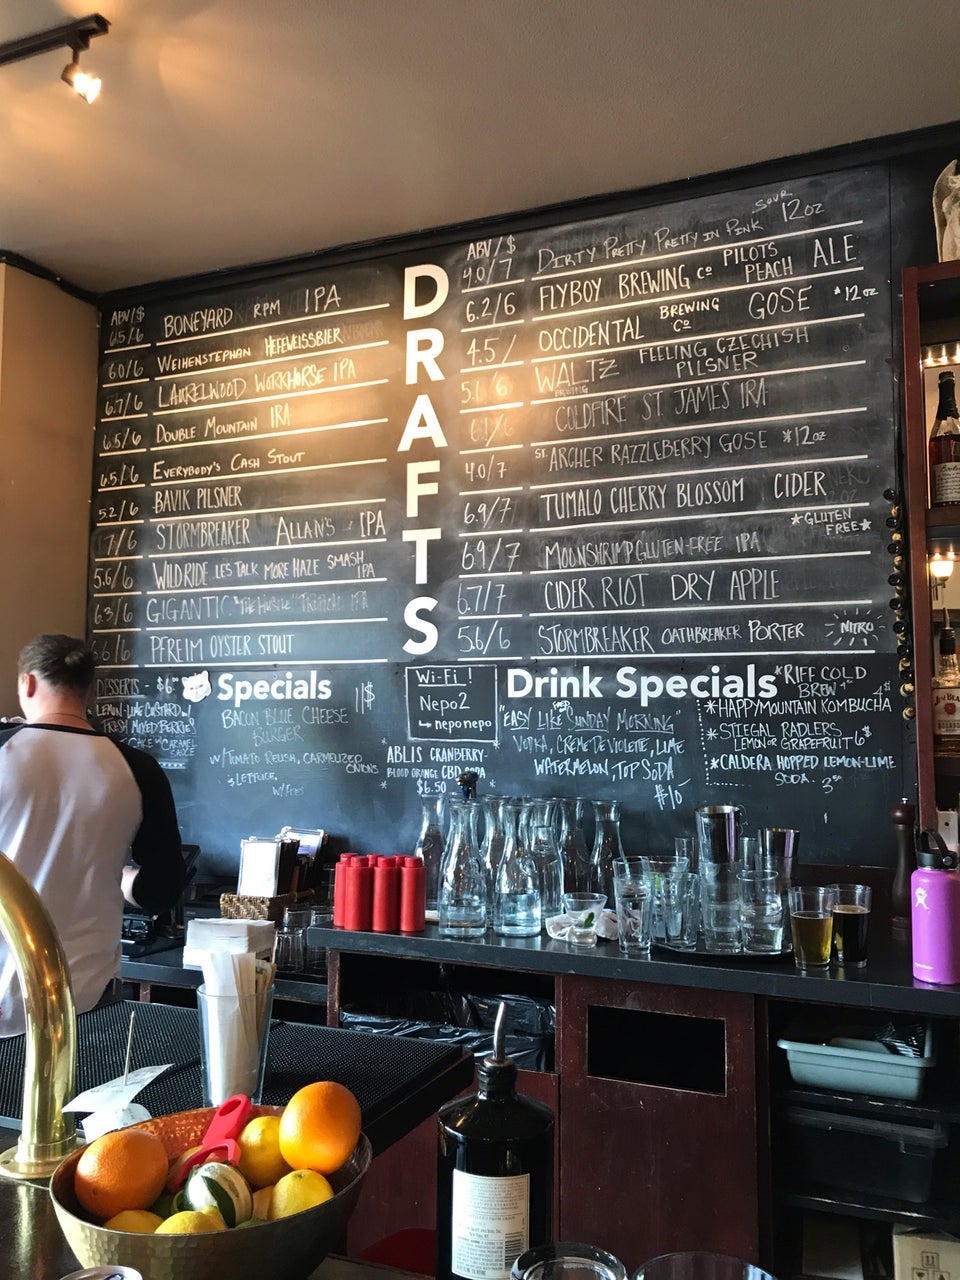 DRAFTS
ABV/$
6.5/6 BONEYARD RPM IPA
6.0/6 WEIHENSTEPHAN HEFEWEISSBIER
6.7/6 LAURELWOOD WORKHORSE IPA
6.5/6 DOUBLE MOUNTAIN IRA
6.5/6 EVERYBODY'S CASH STOUT
5.2/6 BAVIK PILSNER
7/6 STORMBREAKER ALLAN'S IPA
5.6/6 WILDRIDE LES TALK MORE HAZE SMASH IPA
6.3/6 GIGANTIC "THE HUSTLE" TROPICAL IPA
6.6/6 PFREIM OYSTER STOUT
ABV/$
4.0/7 DIRTY PRETTY PRETTY IN PINK SOUR 12OZ
6.2/6 FLYBOY BREWING CO PILOTS PEACH ALE
4.5/ OCCIDENTAL BREWING CO GOSE *12OZ
5.1/6 WALTZ BREWING FEELING CZECHISH PILSNER
6.1/6 COLDFIRE ST. JAMES IRA
4.0/7 ST ARCHER RAZZLEBERRY GOSE *12OZ
6.9/7 TUMALO CHERRY BLOSSOM CIDER
*GLUTEN FREE*
6.9/7 MOONSHRIMP GLUTEN-FREE IPA
6.7/7 CIDER RIOT DRY APPLE
5.6/6 STORMBREAKER OATHBREAKER PORTER NITRO
DESSERTS - $6
LEMON-LIME CUSTARD W/
FRESH MIXED BERRIES
CAKE W/ CARAMEL
SAUCE
Specials
11$
BACON BLUE CHEESE
BURGER
W/TOMATO RELISH, CARMELIZED
ONIONS
& LETTUCE,
W/FRIES
Wi-Fi!
Nepo2
↳ neponepo
ABLIS CRANBERRY-
BLOOD ORANGE CBD SODA
$6.50
Drink Specials
"EASY LIKE SUNDAY MORNING"
VODKA, CREME DE VIOLETE, LIME
WATERMELON, TOP SODA
$10
*RIFF COLD
BREW 4$
*HAPPYMOUNTAIN KOMBUCHA 4$
*STIEGAL RADLERS
LEMON OR GRAPEFRUIT 6$
*CALDERA HOPPED LEMON-LIME
SODA 3$